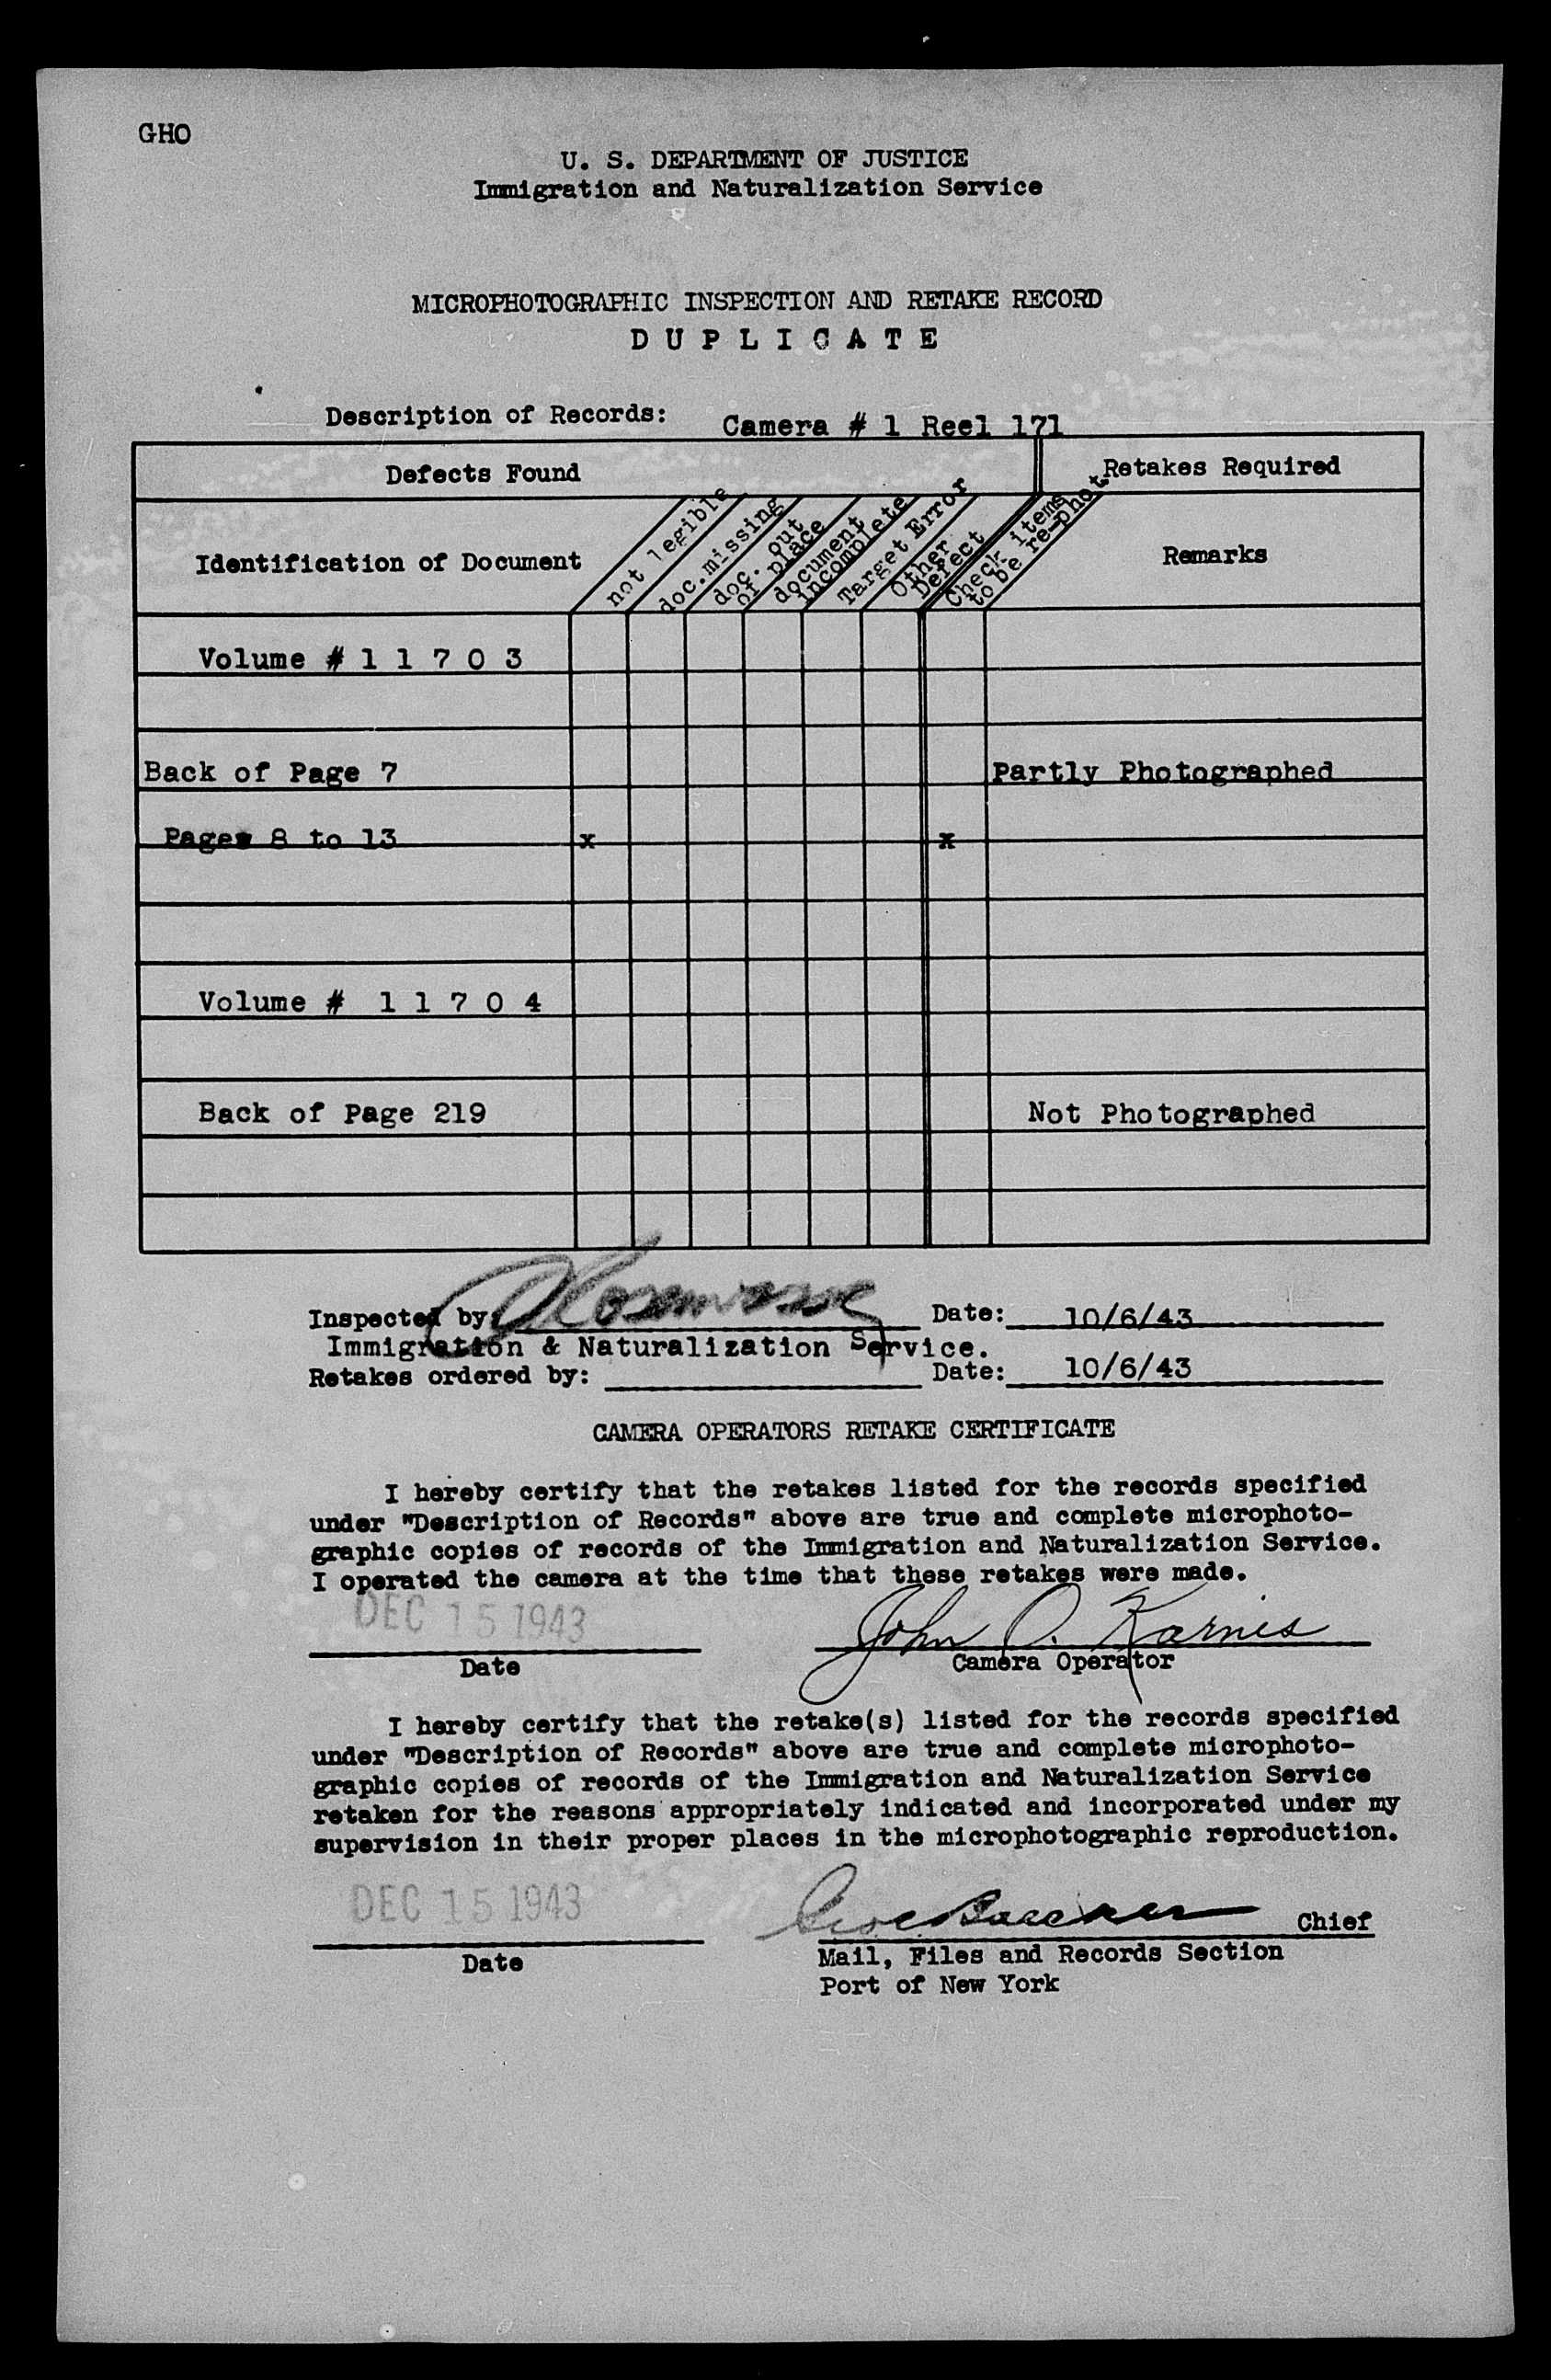 GHO
U. S. DEPARTMENT OF JUSTICE
Immigration and Naturalization Service
MICROPHOTOGRAPHIC INSPECTION AND RETAKE RECORD
D U P L I C A T E
Description of Records: Camera # 1 Reel 171
Defects Found Retakes Required
Identification of Document
not legible
doc.missing
doc. out
of place
document
incomplete
Target Error
Other
Defect
Check items
to be re-phot.
Remarks
Volume # 1 1 7 0 3
Back of Page 7 Partly Photographed
Pages 8 to 13 x x
Volume # 1 1 7 0 4
Back of Page 219 Not Photographed
Inspected by: Date: 10/6/43
Immigration & Naturalization Service.
Retakes ordered by: Date: 10/6/43
CAMERA OPERATORS RETAKE CERTIFICATE
I hereby certify that the retakes listed for the records specified
under "Description of Records" above are true and complete microphoto-
graphic copies of records of the Immigration and Naturalization Service.
I operated the camera at the time that these retakes were made.
DEC 15 1943 John O. Karnes
Date Camera Operator
I hereby certify that the retake(s) listed for the records specified
under "Description of Records" above are true and complete microphoto-
graphic copies of records of the Immigration and Naturalization Service
retaken for the reasons appropriately indicated and incorporated under my
supervision in their proper places in the microphotographic reproduction.
DEC 15 1943 Chief
Date Mail, Files and Records Section
Port of New York